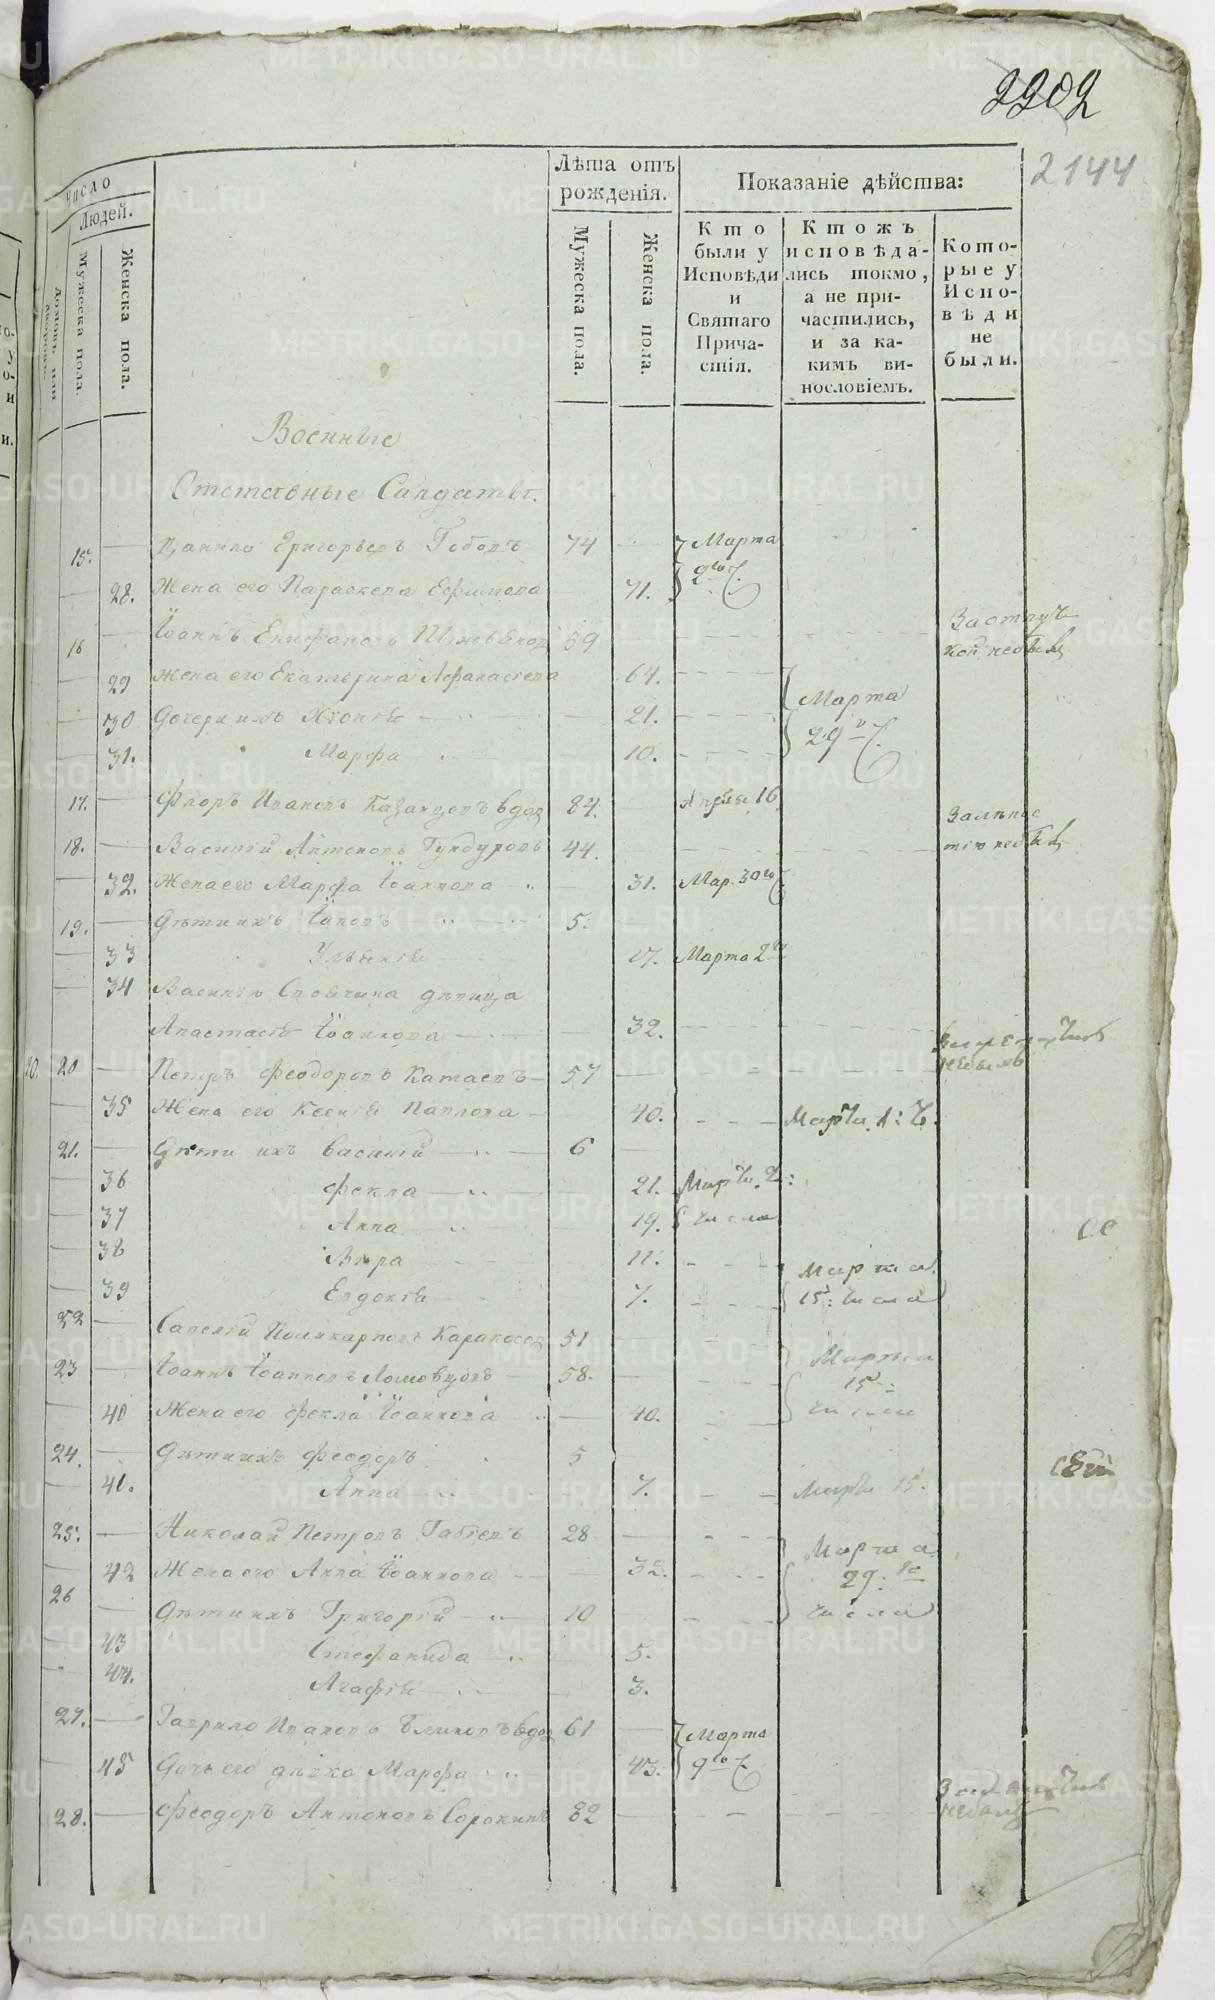 2202
2144
Число
Людей.
Лѣта отъ рожденія.
Показаніе дѣйства:
Домовъ или
Мужеска пола.
Женска пола.
Мужеска пола.
Женска пола.
Кто были у Исповѣди и Святаго Причастія.
Ктожъ исповѣдались токмо, а не причастились, и за какимъ винословіемъ.
Которые у Исповѣди не были.
Военные
Отставные Салдаты.
15. Данило Григорьевъ 74 Марта
28. Жена его Параскева Ефимова 71. 2го Ч.
16 Іоаннъ Епифановъ 59 За отлуч
29 Жена его Екатерина Афанасіева 64.
30 Дочери ихъ Хіонія 21. Марта
31. Марфа 10. 29 Ч.
17. Флоръ Ивановъ Казанцовъ вдов 84. Апрѣля 16
18. Василій Антоновъ 44.
32. Жена его Марфа Іоаннова 31. Мар. 30го Ч.
19. Дѣти ихъ Іаковъ 5.
33 Уліанія 17. Марта 2го
34 Василья дѣвица
Анастасія Іоаннова 32.
10. 20 Петръ Феодоровъ Катаевъ 57
35 Жена его Ксенія Павлова 40. Марта 1: Ч.
21. Дѣти ихъ Василій 6
36 Фекла 21. Марта 2:
37 Анна 19. числа
38 Вѣра 11. Марта
39 Евдокія 7. 15: числа
22 Савелій Поликарповъ 51
23 Іоаннъ Іоанновъ Ломовцовъ 58. Марта 15
40 Жена его Фекла Іоаннова 40. числа
24. Дѣти ихъ Феодоръ 5
41. Анна 7. Марта 15.
25. Николай Петровъ 28 Марта
42 Жена его Анна Іоаннова 32. 29.го
26 Дѣти ихъ Григорій 10 числа
43 Стефанида 5.
44. Агафія 3.
27. Гаврило Ивановъ вдов 61 Марта
45 Дочь его дѣвка Марфа 43. 9го Ч
28. Феодоръ Антоновъ Сорокинъ 82